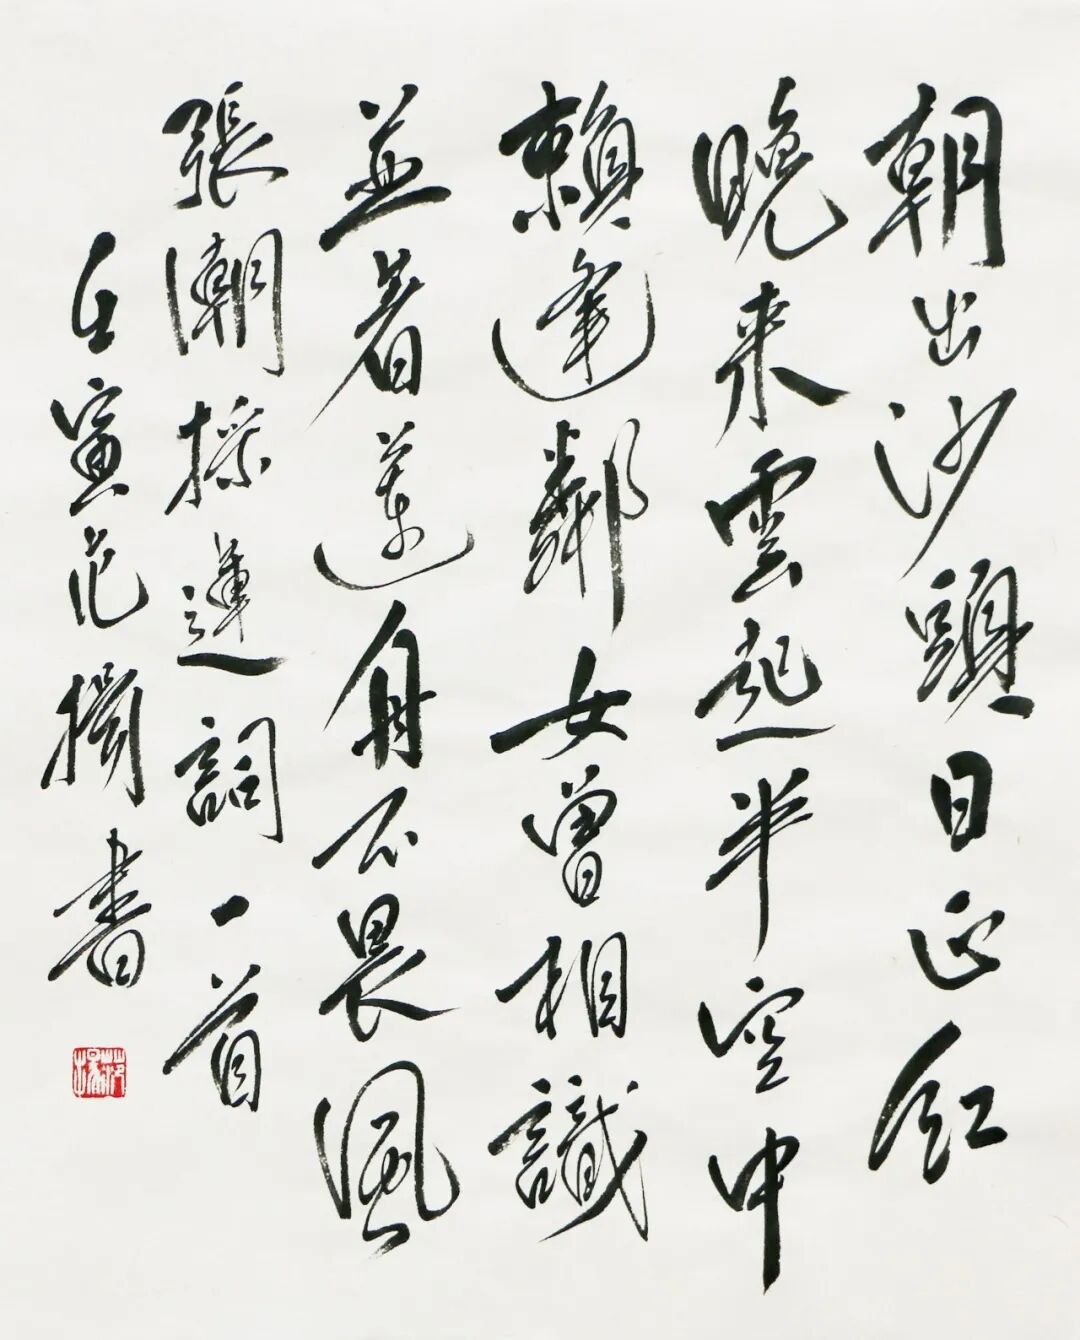 朝出沙頭日正紅
晚来雲起半空中
賴逢鄰女曾相識
並著蓮舟不畏風
張潮採蓮詞一首
壬寅范書